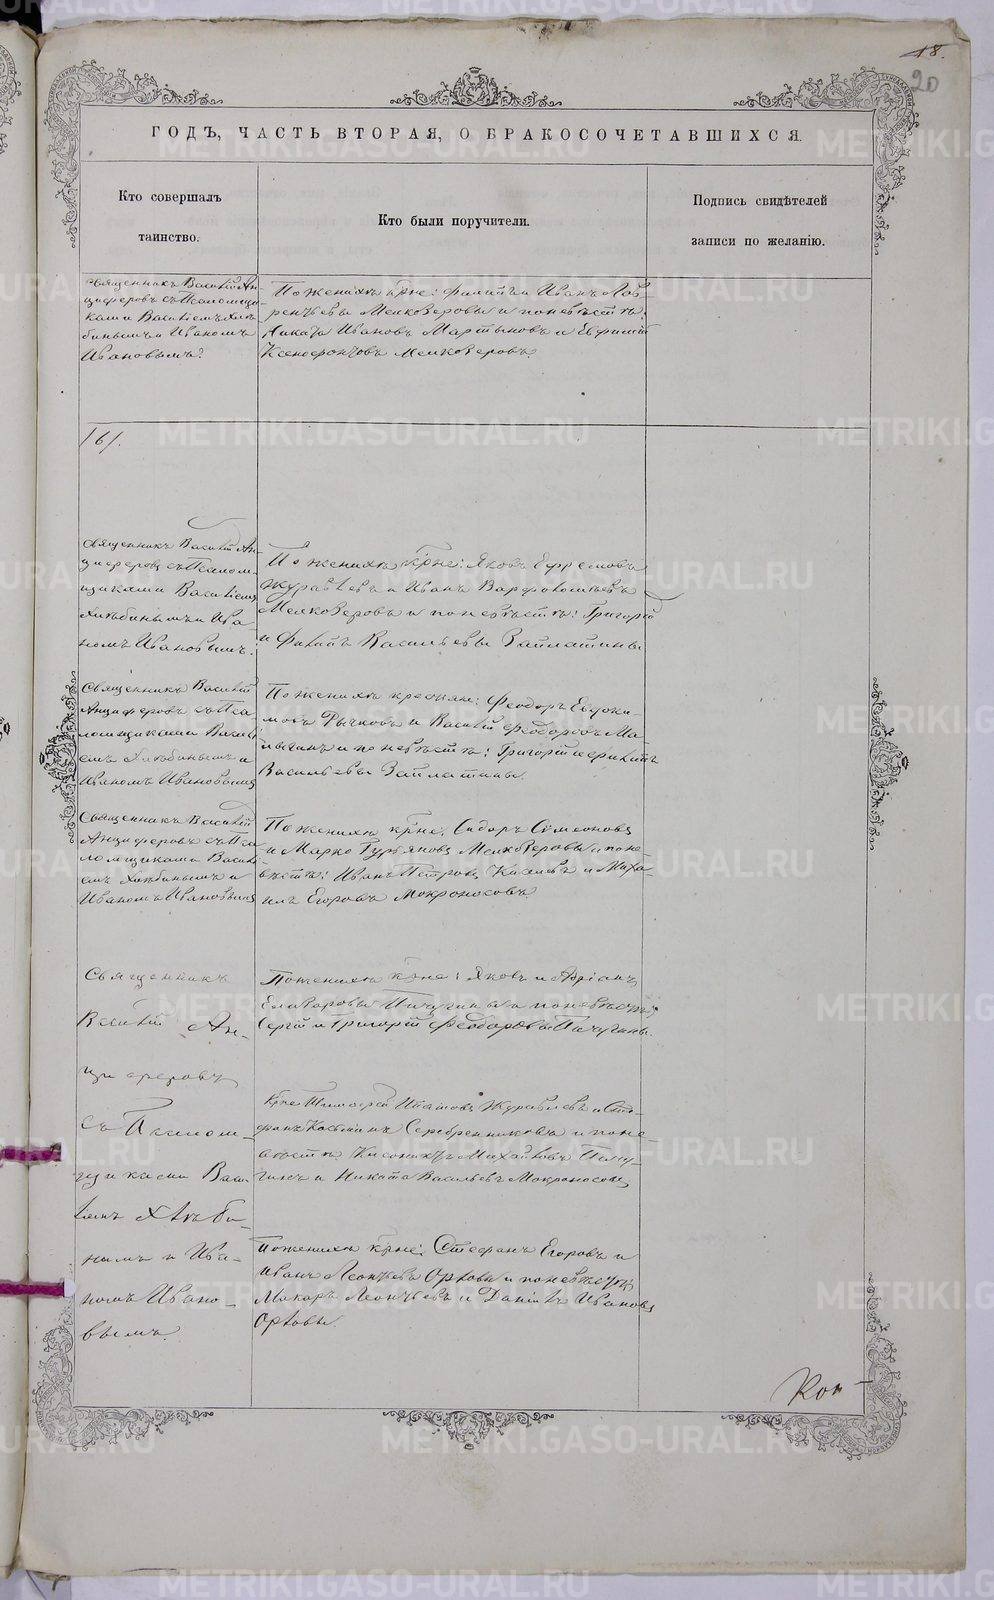 18.
20
ГОДЪ, ЧАСТЬ ВТОРАЯ, О БРАКОСОЧЕТАВШИХСЯ.
Кто совершалъ
таинство.
Кто были поручители.
Подпись свидѣтелей
записи по желанію.
Священникъ Василій Ан-
циферовъ съ Псаломщи-
ками Василіемъ Хлѣ-
бинымъ и Иваномъ
Ивановымъ.
По женихѣ крне: Филипъ и Иванъ Лав-
рентьевы Мелкозеровы и по невѣстѣ:
Никита Ивановъ Мартыновъ и Евфимій
Ксенофонтовъ Мелкозеровъ.
161.
Священникъ Василій Ан-
циферовъ съ Псалом-
щиками Василіемъ
Хлѣбинымъ и Ива-
номъ Ивановымъ.
По женихѣ крне: Яковъ Ефремовъ
Журавлевъ и Иванъ Варфоломѣевъ
Мелкозеровъ и по невѣстѣ: Григорій
и Филипъ Васильевы Заплатины
Священникъ Василій
Анциферовъ съ Пса-
ломщиками Васил-
емъ Хлѣбинымъ и
Иваномъ Ивановымъ
По женихѣ крестьяне: Феодоръ Евдоки-
мовъ Рычковъ и Василій Феодоровъ Ма-
и по невѣстѣ: Григорій и Филипъ
Васильевы Заплатины.
Священникъ Василій
Анциферовъ съ Пса-
ломщиками Васил-
емъ Хлѣбинымъ и
Иваномъ Ивановымъ
По женихѣ крне: Сидоръ Симеоновъ
и Марко Гурьяновъ Мелкозеровы и по не-
вѣстѣ: Иванъ Петровъ и Миха-
илъ Егоровъ Мокроносовъ.
Священникъ
Василій Ан-
циферовъ
съ Псалом-
щиками Васи-
ліемъ Хлѣби-
нымъ и Ива-
номъ Ивано-
вымъ.
По женихѣ крне: Яковъ и Адріанъ
Елизаровы Пичугины и по невѣстѣ:
Сергій и Григорій Феодоровы Пичугины.
Крне Тимофей Журавлевъ и Сте-
фанъ Косьминъ Серебренниковъ и по не-
вѣстѣ Михайловъ Пичу-
гинъ и Никита Васильевъ Мокроносовъ
По женихѣ крне: Стефанъ Егоровъ и
Иванъ Леонтьевъ Орловы и по невѣстѣ
Макаръ Леонтьевъ и Даніилъ Ивановъ
Орловы.
Кон-
METRIKI.GASO-URAL.RU